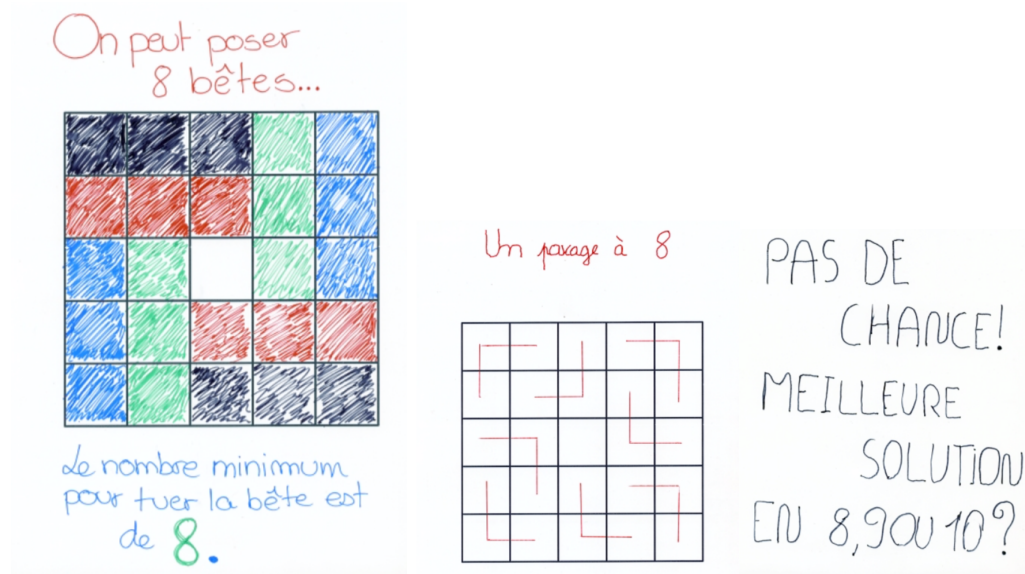 On peut poser
8 bêtes...
Le nombre minimum
pour tuer la bête est
de 8.
Un paxage à 8
PAS DE
CHANCE!
MEILLEURE
SOLUTION
EN 8,9 OU 10?